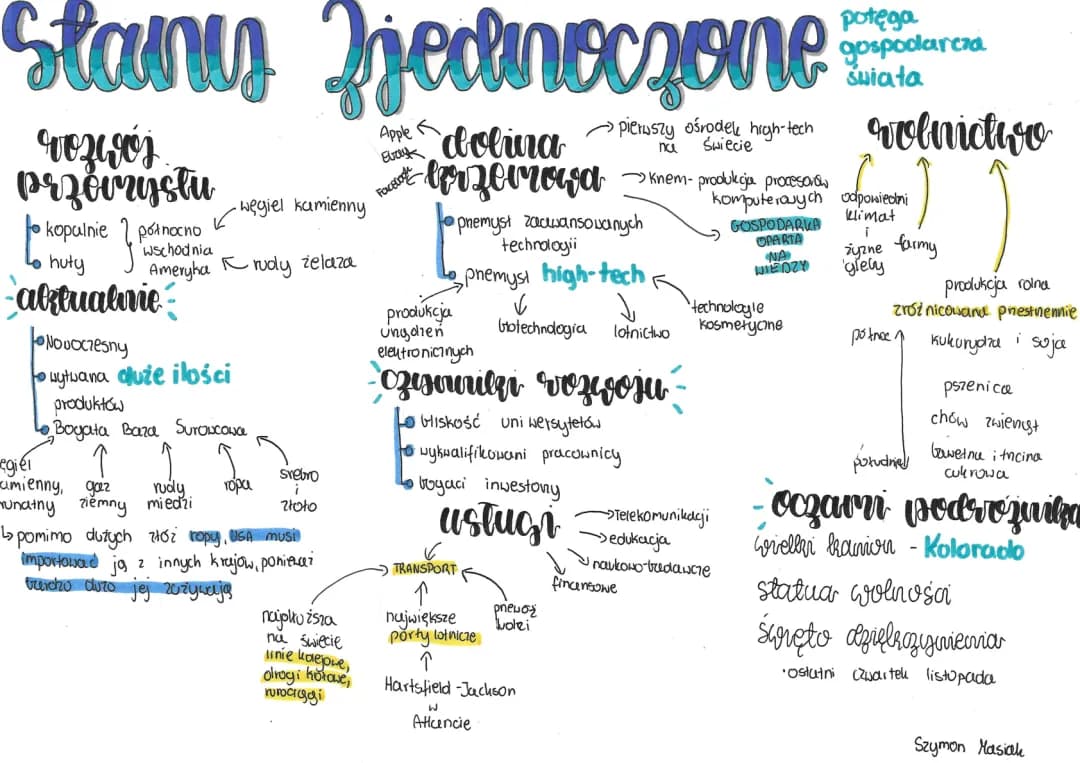 Stany Zjednoczone
potęga
gospodarcza
świata
rozwój
przemysłu
kopalnie
huty
północno
wschodnia
Ameryka
węgiel kamienny
rudy żelaza
aktualnie
Nowoczesny
wytwarza duże ilości
produktów
Bogata Baza Surowcowa
gaz
ziemny
rudy
miedzi
ropa
srebro
i
złoto
pomimo dużych złóż ropy, USA musi
importować ją z innych krajów, ponieważ
bardzo dużo jej zużywają
dolina
krzemowa
Apple
Ebay
Facebook
pierwszy ośrodek high-tech
na świecie
krzem - produkcja procesorów
komputerowych
GOSPODARKA
OPARTA
NA
WIEDZY
przemysł zaawansowanych
technologii
przemysł high-tech
produkcja
urządzeń
elektronicznych
biotechnologia
lotnictwo
technologie
kosmetyczne
czynniki rozwoju
bliskość uniwersytetów
wykwalifikowani pracownicy
bogaci inwestorzy
usługi
Telekomunikacji
edukacja
naukowo-badawcze
finansowe
TRANSPORT
najdłuższa
na świecie
linie kolejowe,
drogi kołowe,
rurociągi
największe
porty lotnicze
Hartsfield-Jackson
w
Atlancie
przewóz
ludzi
rolnictwo
odpowiedni
klimat
i
żyzne
gleby
farmy
produkcja rolna
zróżnicowana przestrzennie
północ
kukurydza i soja
pszenica
chów zwierząt
południe
bawełna i trzcina
cukrowa
oczami podróżnika
wielki kanion - Kolorado
statua wolności
święto dziękczynienia
ostatni czwartek listopada
Szymon Masiak